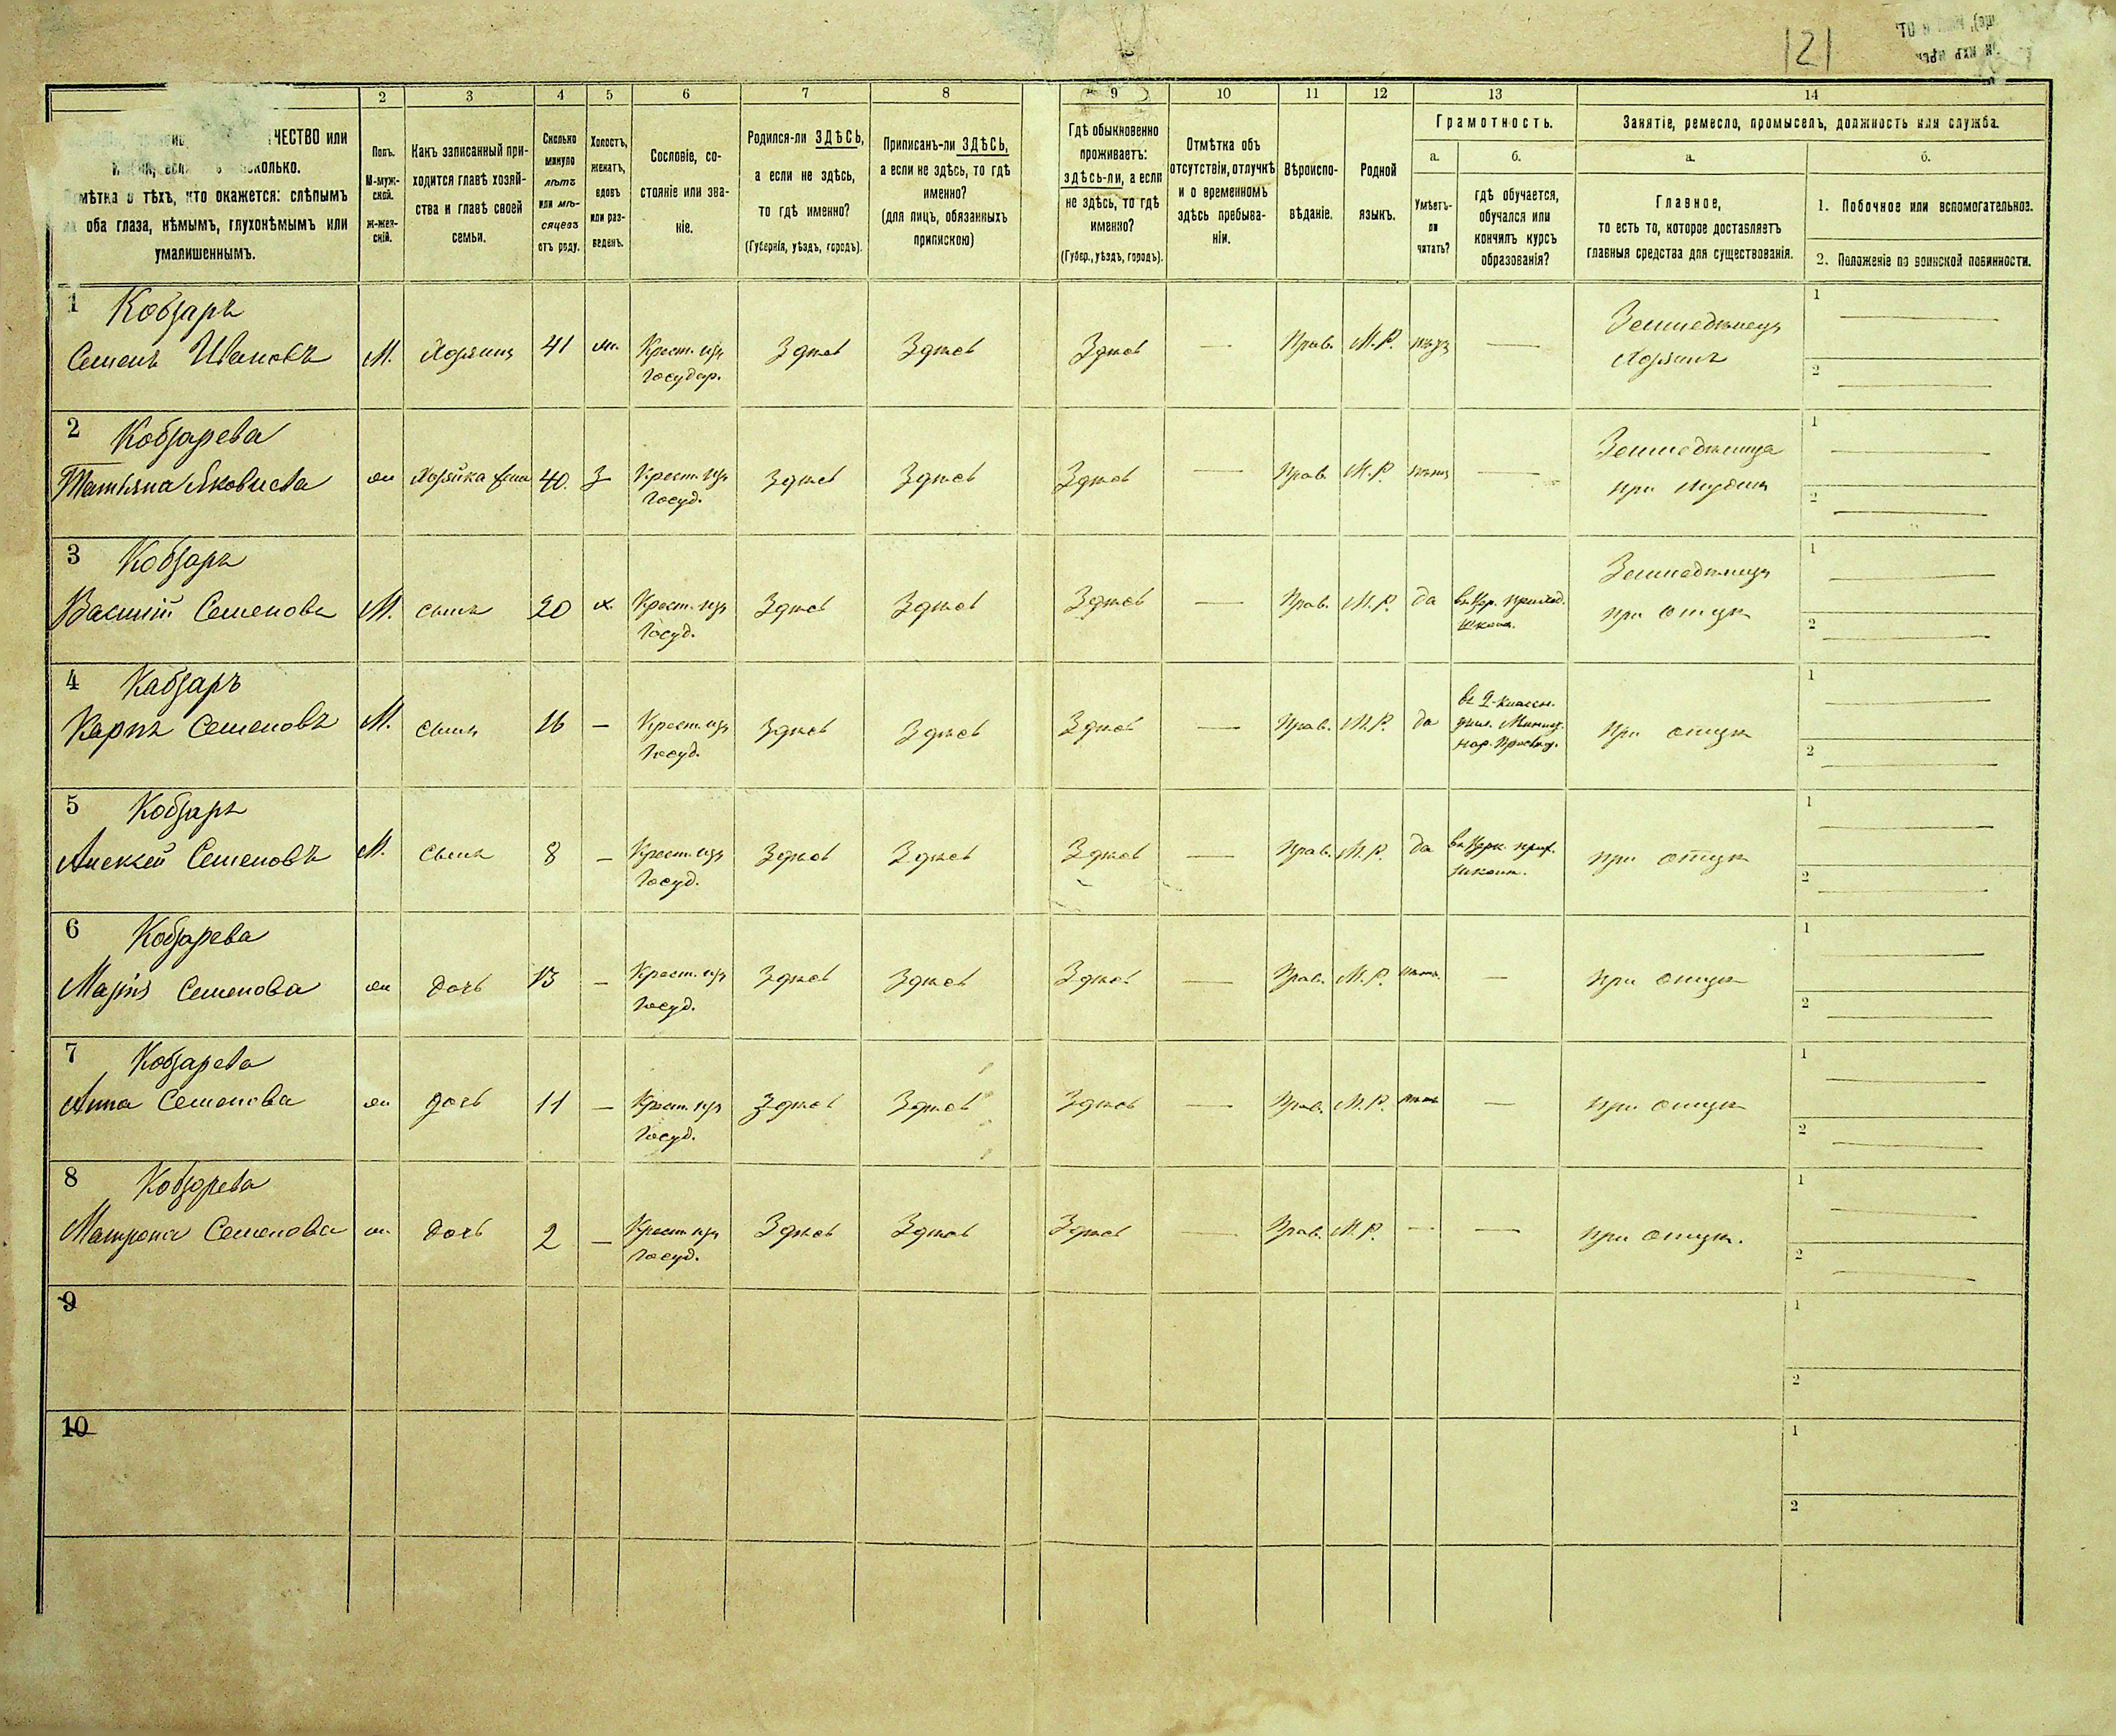 121
2 3 4 5 6 7 8 9 10 11 12 13 14
ЧЕСТВО или
Отмѣтка о тѣхъ, кто окажется: слѣпымъ
на оба глаза, нѣмымъ, глухонѣмымъ или
умалишеннымъ.
Полъ.
М-муж-
ской.
Ж-жен-
скій.
Какъ записанный при-
ходится главѣ хозяй-
ства и главѣ своей
семьи.
Сколько
минуло
лѣтъ
или мѣ-
сяцевъ
отъ роду.
Холостъ,
женатъ,
вдовъ
или раз-
веденъ.
Сословіе, со-
стояніе или зва-
ніе.
Родился-ли ЗДѢСЬ,
а если не здѣсь,
то гдѣ именно?
(Губернія, уѣздъ, городъ).
Приписанъ-ли ЗДѢСЬ,
а если не здѣсь, то гдѣ
именно?
(для лицъ, обязанныхъ
припискою)
Гдѣ обыкновенно
проживаетъ:
здѣсь-ли, а если
не здѣсь, то гдѣ
именно?
(Губер., уѣздъ, городъ).
Отмѣтка объ
отсутствіи, отлучкѣ
и о временномъ
здѣсь пребыва-
ніи.
Вѣроиспо-
вѣданіе.
Родной
языкъ.
Грамотность.
а.
Умѣетъ-
ли
читать?
б.
гдѣ обучается,
обучался или
кончилъ курсъ
образованія?
Занятіе, ремесло, промыселъ, должность или служба.
а.
Главное,
то есть то, которое доставляетъ
главныя средства для существованія.
б.
1. Побочное или вспомогательное.
2. Положеніе по воинской повинности.
1 Кобзарь
Семенъ Ивановъ М. Хозяинъ 41 ж. Крест. изъ Здѣсь Здѣсь Здѣсь — Прав. М.Р. нѣтъ — Земледѣлецъ 1 —
Государ. Хозяинъ 2 —
2 Кобзарева
Татьяна Яковлева ж Хозяйка жена 40. З Крест. изъ Здѣсь Здѣсь Здѣсь — Прав. М.Р. нѣтъ — Земледѣлица 1 —
Госуд. при мужѣ 2 —
3 Кобзарь
Василій Семеновъ М. сынъ 20 х. Крест. изъ Здѣсь Здѣсь Здѣсь — Прав. М.Р. да въ Цер. приход. Земледѣлецъ 1 —
Госуд. школѣ. при отцѣ 2 —
4 Кабзаръ
Карпъ Семеновъ М. сынъ 16 — Крест. изъ Здѣсь Здѣсь Здѣсь — Прав. М.Р. да въ 2-классн. при отцѣ 1 —
Госуд. учил. Минист. 2 —
нар. Просвѣщ.
5 Кобзарь
Алексей Семеновъ М. Сынъ 8 — Крест. изъ Здѣсь Здѣсь Здѣсь — Прав. М.Р. да въ Церк. прих. при отцѣ 1 —
Госуд. школѣ. 2 —
6 Кобзарева
Марія Семенова ж дочь 13 — Крест. изъ Здѣсь Здѣсь Здѣсь — Прав. М.Р. нѣтъ. — при отцѣ 1 —
Госуд. 2 —
7 Кобзарева
Анна Семенова ж дочь 11 — Крест. изъ Здѣсь Здѣсь Здѣсь — Прав. М.Р. нѣтъ — при отцѣ 1 —
Госуд. 2 —
8 Кобзарева
Матрона Семенова ж. дочь 2 — Крест. изъ Здѣсь Здѣсь Здѣсь — Прав. М.Р. — — при отцѣ. 1 —
Госуд. 2 —
9 1
2
10 1
2